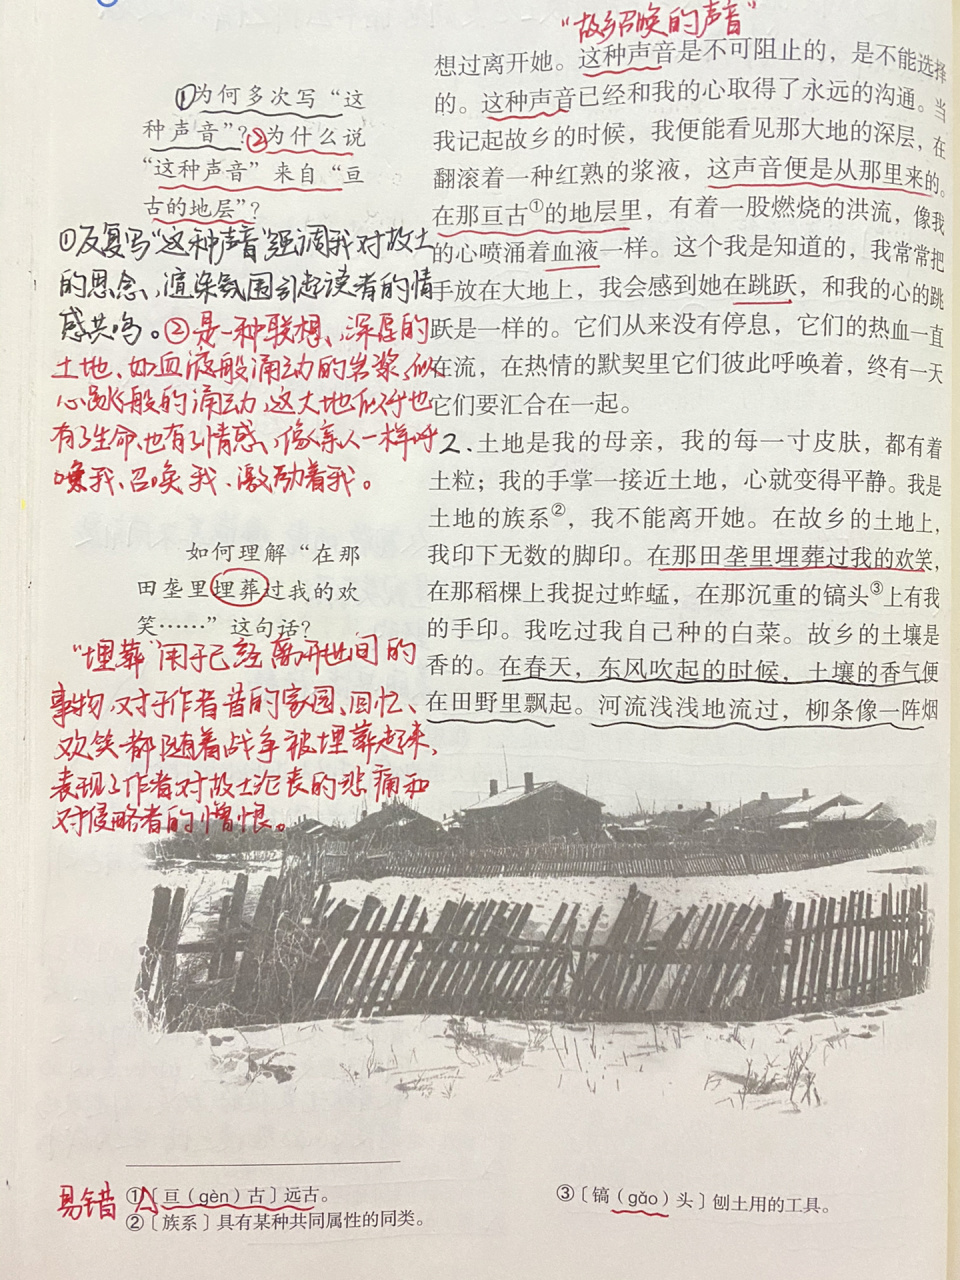 “故乡召唤的声音”
想过离开她。这种声音是不可阻止的，是不能选择
的。这种声音已经和我的心取得了永远的沟通。当
我记起故乡的时候，我便能看见那大地的深层，在
翻滚着一种红熟的浆液，这声音便是从那里来的。
在那亘古①的地层里，有着一股燃烧的洪流，像我
的心喷涌着血液一样。这个我是知道的，我常常把
手放在大地上，我会感到她在跳跃，和我的心的跳
跃是一样的。它们从来没有停息，它们的热血一直
在流，在热情的默契里它们彼此呼唤着，终有一天
它们要汇合在一起。
2.土地是我的母亲，我的每一寸皮肤，都有着
土粒；我的手掌一接近土地，心就变得平静。我是
土地的族系②，我不能离开她。在故乡的土地上，
我印下无数的脚印。在那田垄里埋葬过我的欢笑，
在那稻棵上我捉过蚱蜢，在那沉重的镐头③上有我
的手印。我吃过我自己种的白菜。故乡的土壤是
香的。在春天，东风吹起的时候，土壤的香气便
在田野里飘起。河流浅浅地流过，柳条像一阵烟
①为何多次写“这
种声音”？②为什么说
“这种声音”来自“亘
古的地层”？
①反复写“这种声音”强调我对故土
的思念、渲染氛围引起读者的情
感共鸣。②是一种联想、深厚的
土地、如血液般涌动的岩浆、似
心跳般的涌动，这大地似乎也
有了生命、也有了情感、像亲人一样呼
唤我、召唤我、激励着我。
如何理解“在那
田垄里埋葬过我的欢
笑……”这句话？
“埋葬”用于已经离开世间的
事物，对于作者昔的家园、回忆、
欢笑都随着战争被埋葬起来，
表现了作者对故土沦丧的悲痛和
对侵略者的憎恨。
易错
①〔亘（gèn）古〕远古。
②〔族系〕具有某种共同属性的同类。
③〔镐（gǎo）头〕刨土用的工具。